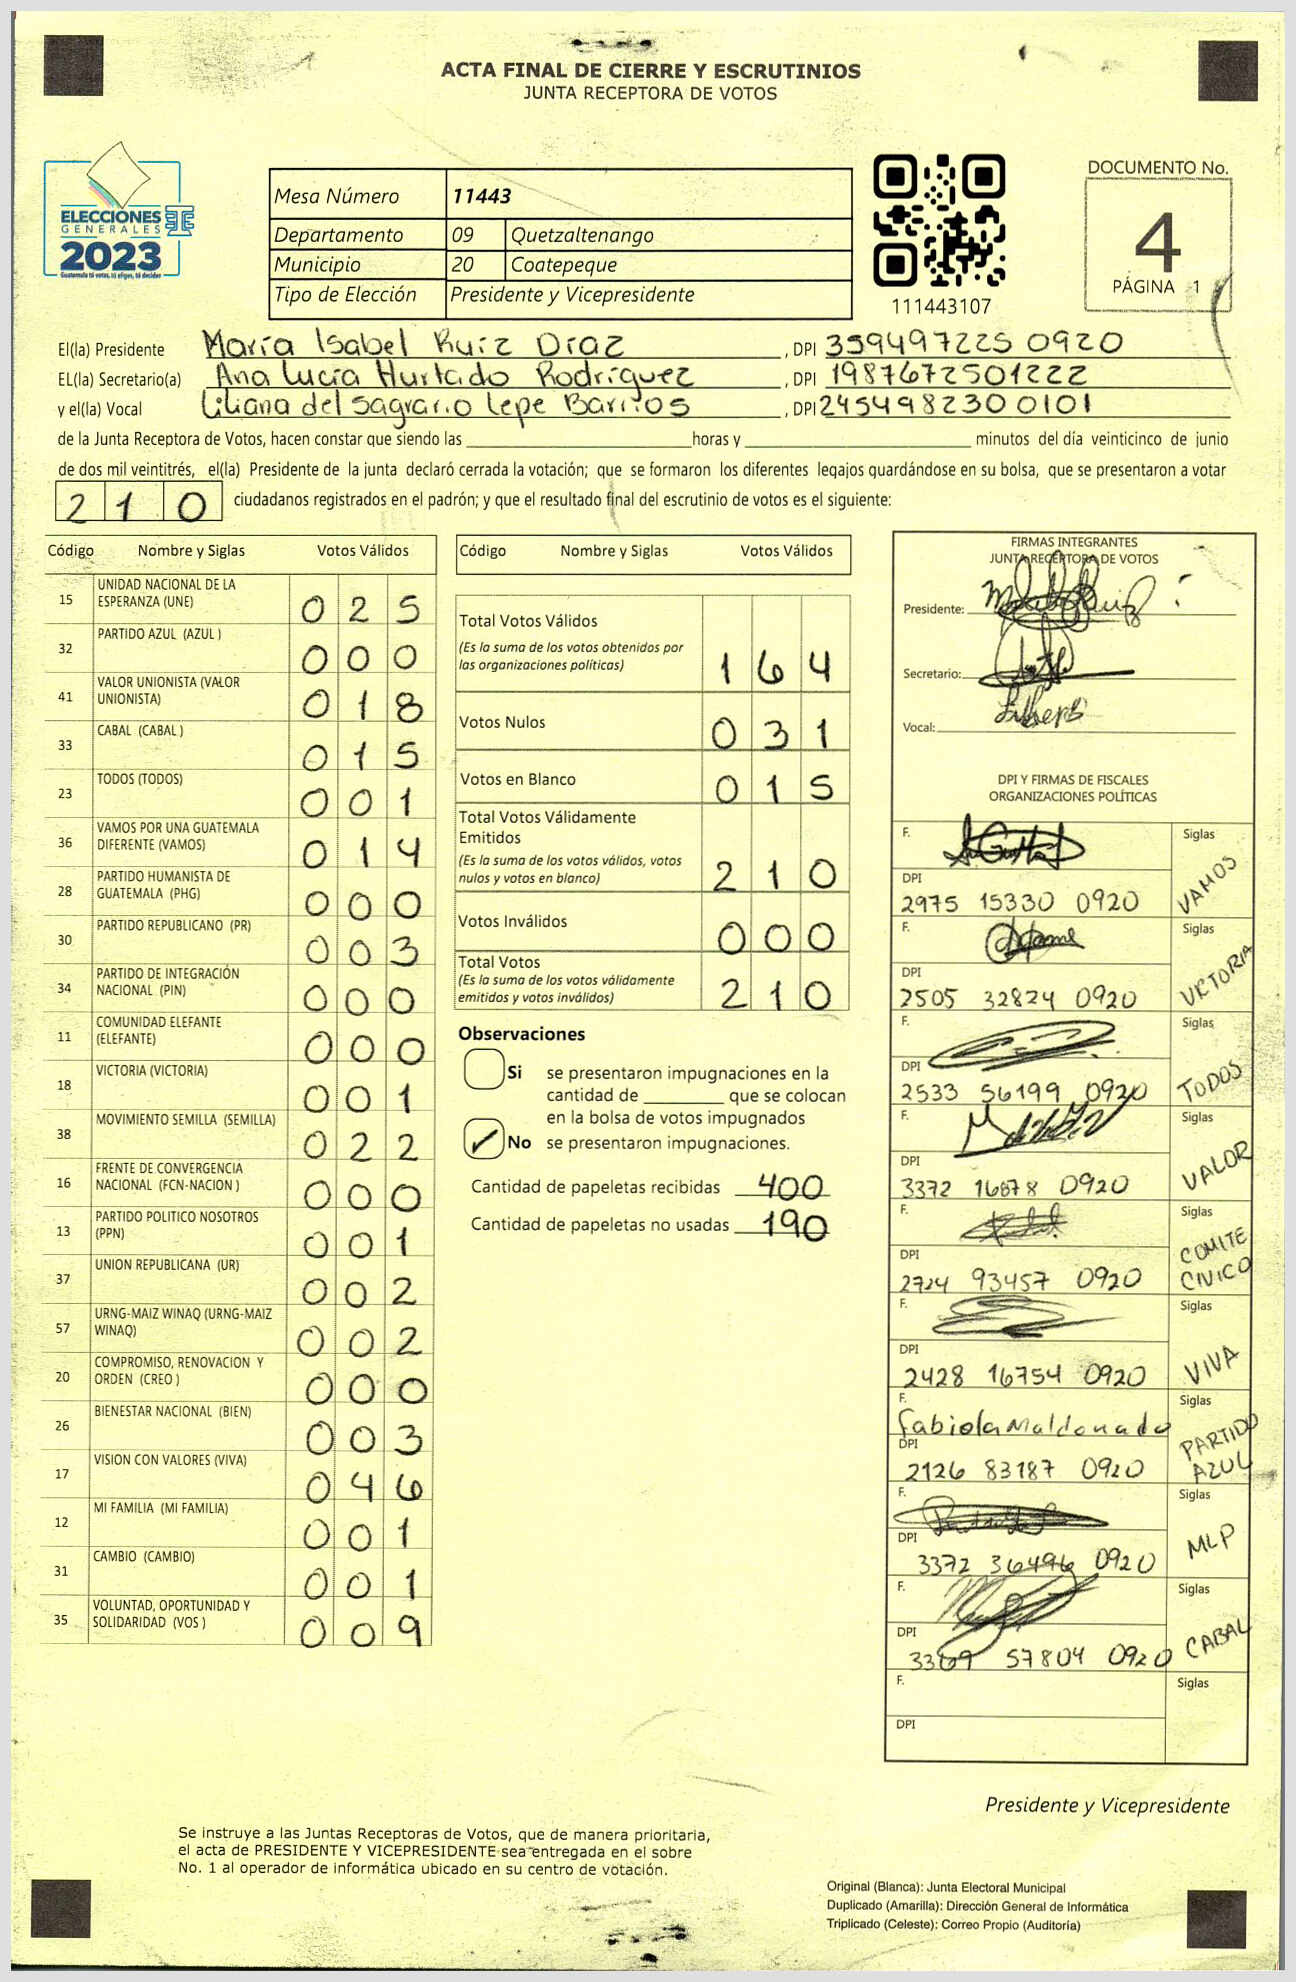 ACTA FINAL DE CIERRE Y ESCRUTINIOS
JUNTA RECEPTORA DE VOTOS
ELECCIONES
GENERALES
2023
Guatemala tú votas, tú eliges, tú decides
Mesa Número 11443
Departamento 09 Quetzaltenango
Municipio 20 Coatepeque
Tipo de Elección Presidente y Vicepresidente
111443107
DOCUMENTO No.
4
PÁGINA 1
El(la) Presidente María Isabel Ruíz Díaz , DPI 359497225 0920
EL(la) Secretario(a) Ana Lucía Hurtado Rodríguez , DPI 1987672501222
y el(la) Vocal Liliana del Sagrario Lepe Barrios , DPI 2454982300101
de la Junta Receptora de Votos, hacen constar que siendo las ____ horas y ____ minutos del día veinticinco de junio
de dos mil veintitrés, el(la) Presidente de la junta declaró cerrada la votación; que se formaron los diferentes legajos guardándose en su bolsa, que se presentaron a votar
210 ciudadanos registrados en el padrón; y que el resultado final del escrutinio de votos es el siguiente:
Código Nombre y Siglas Votos Válidos
15 UNIDAD NACIONAL DE LA ESPERANZA (UNE) 025
32 PARTIDO AZUL (AZUL ) 000
41 VALOR UNIONISTA (VALOR UNIONISTA) 018
33 CABAL (CABAL ) 015
23 TODOS (TODOS) 001
36 VAMOS POR UNA GUATEMALA DIFERENTE (VAMOS) 014
28 PARTIDO HUMANISTA DE GUATEMALA (PHG) 000
30 PARTIDO REPUBLICANO (PR) 003
34 PARTIDO DE INTEGRACIÓN NACIONAL (PIN) 000
11 COMUNIDAD ELEFANTE (ELEFANTE) 000
18 VICTORIA (VICTORIA) 001
38 MOVIMIENTO SEMILLA (SEMILLA) 022
16 FRENTE DE CONVERGENCIA NACIONAL (FCN-NACION ) 000
13 PARTIDO POLITICO NOSOTROS (PPN) 001
37 UNION REPUBLICANA (UR) 002
57 URNG-MAIZ WINAQ (URNG-MAIZ WINAQ) 002
20 COMPROMISO, RENOVACION Y ORDEN (CREO ) 000
26 BIENESTAR NACIONAL (BIEN) 003
17 VISION CON VALORES (VIVA) 046
12 MI FAMILIA (MI FAMILIA) 001
31 CAMBIO (CAMBIO) 001
35 VOLUNTAD, OPORTUNIDAD Y SOLIDARIDAD (VOS ) 009
Código Nombre y Siglas Votos Válidos
Total Votos Válidos 164
(Es la suma de los votos obtenidos por
las organizaciones políticas)
Votos Nulos 031
Votos en Blanco 015
Total Votos Válidamente
Emitidos 210
(Es la suma de los votos válidos, votos
nulos y votos en blanco)
Votos Inválidos 000
Total Votos 210
(Es la suma de los votos válidamente
emitidos y votos inválidos)
Observaciones
Si se presentaron impugnaciones en la
cantidad de ____ que se colocan
en la bolsa de votos impugnados
✓ No se presentaron impugnaciones.
Cantidad de papeletas recibidas 400
Cantidad de papeletas no usadas 190
FIRMAS INTEGRANTES
JUNTA RECEPTORA DE VOTOS
Presidente:
Secretario:
Vocal:
DPI Y FIRMAS DE FISCALES
ORGANIZACIONES POLÍTICAS
F. Siglas VAMOS
DPI 2975 15330 0920
F. Siglas VICTORIA
DPI 2505 32824 0920
F. Siglas TODOS
DPI 2533 56199 0920
F. Siglas VALOR
DPI 3372 16878 0920
F. Siglas COMITE CIVICO
DPI 2724 93457 0920
F. Siglas VIVA
DPI 2428 16754 0920
F. Fabiola Maldonado Siglas PARTIDO AZUL
DPI 2126 83187 0920
F. Siglas MLP
DPI 3372 36496 0920
F. Siglas CABAL
DPI 3369 57804 0920
F. Siglas
DPI
Presidente y Vicepresidente
Se instruye a las Juntas Receptoras de Votos, que de manera prioritaria,
el acta de PRESIDENTE Y VICEPRESIDENTE sea entregada en el sobre
No. 1 al operador de informática ubicado en su centro de votación.
Original (Blanca): Junta Electoral Municipal
Duplicado (Amarilla): Dirección General de Informática
Triplicado (Celeste): Correo Propio (Auditoría)